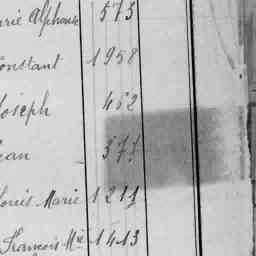 rie Alphonse 573
Constant 1958
Joseph 452
Jean 377
Louis Marie 1211
François Mie 1413